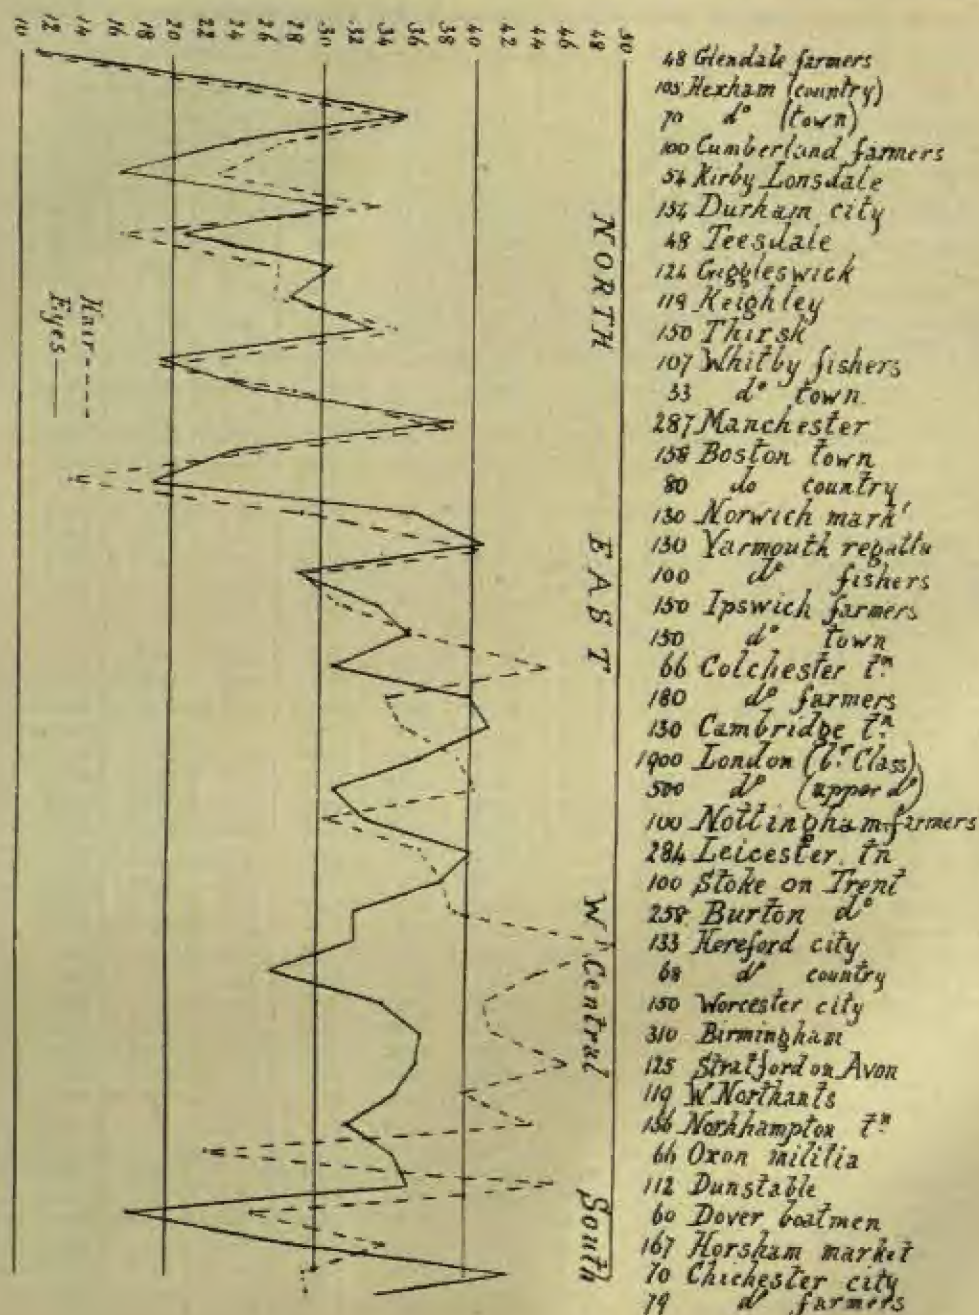 10 12 14 16 18 20 22 24 26 28 30 32 34 36 38 40 42 44 46 48 50
48 Glendale farmers
105 Hexham (country)
70 dº (town)
100 Cumberland farmers
54 Kirby Lonsdale
154 Durham city
48 Teesdale
124 Giggleswick
119 Keighley
150 Thirsk
107 Whitby fishers
33 dº town
287 Manchester
158 Boston town
80 do country
130 Norwich mark^t
130 Yarmouth regatta
100 dº fishers
150 Ipswich farmers
150 dº town
66 Colchester tⁿ
180 dº farmers
130 Cambridge tⁿ
1900 London (l^r Class)
500 dº (upper dº)
100 Nottingham farmers
284 Leicester tn
100 Stoke on Trent
258 Burton dº
133 Hereford city
68 dº country
150 Worcester city
310 Birmingham
125 Stratford on Avon
119 W Northants
156 Northhampton tⁿ
66 Oxon militia
112 Dunstable
60 Dover boatmen
167 Horsham market
70 Chichester city
79 dº farmers
NORTH
EAST
Wⁿ Central
South
Hair
Eyes